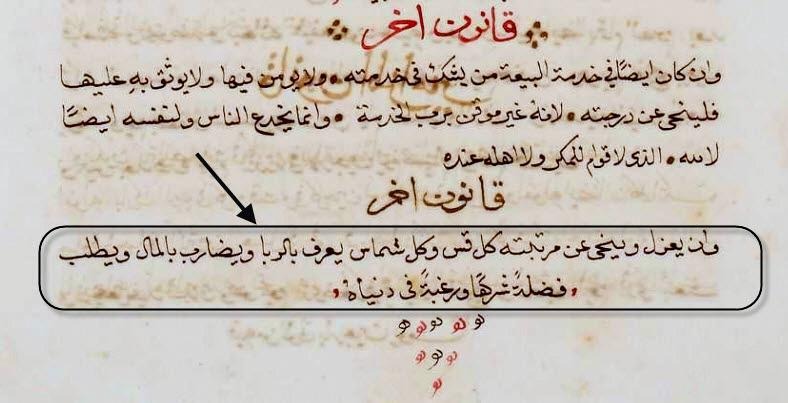 قانون اخر
وان كان ايضًا في خدمة البيعة من يشك في خدمته • ولا يومن فيها ولا يوثق به عليها
فلينحى عن درجته • لانه غير موقن برب الخدمة • وانما يخدع الناس ولنفسه ايضًا
لا لله • الذي لا قوام للمكر ولا اهله عنده
قانون اخر
وان يعزل وينحى عن مرتبته كل قس وكل شماس يعرف بالربا ويضارب بالمال ويطلب
فضلةً شرهًا ورغبةً في دنياه